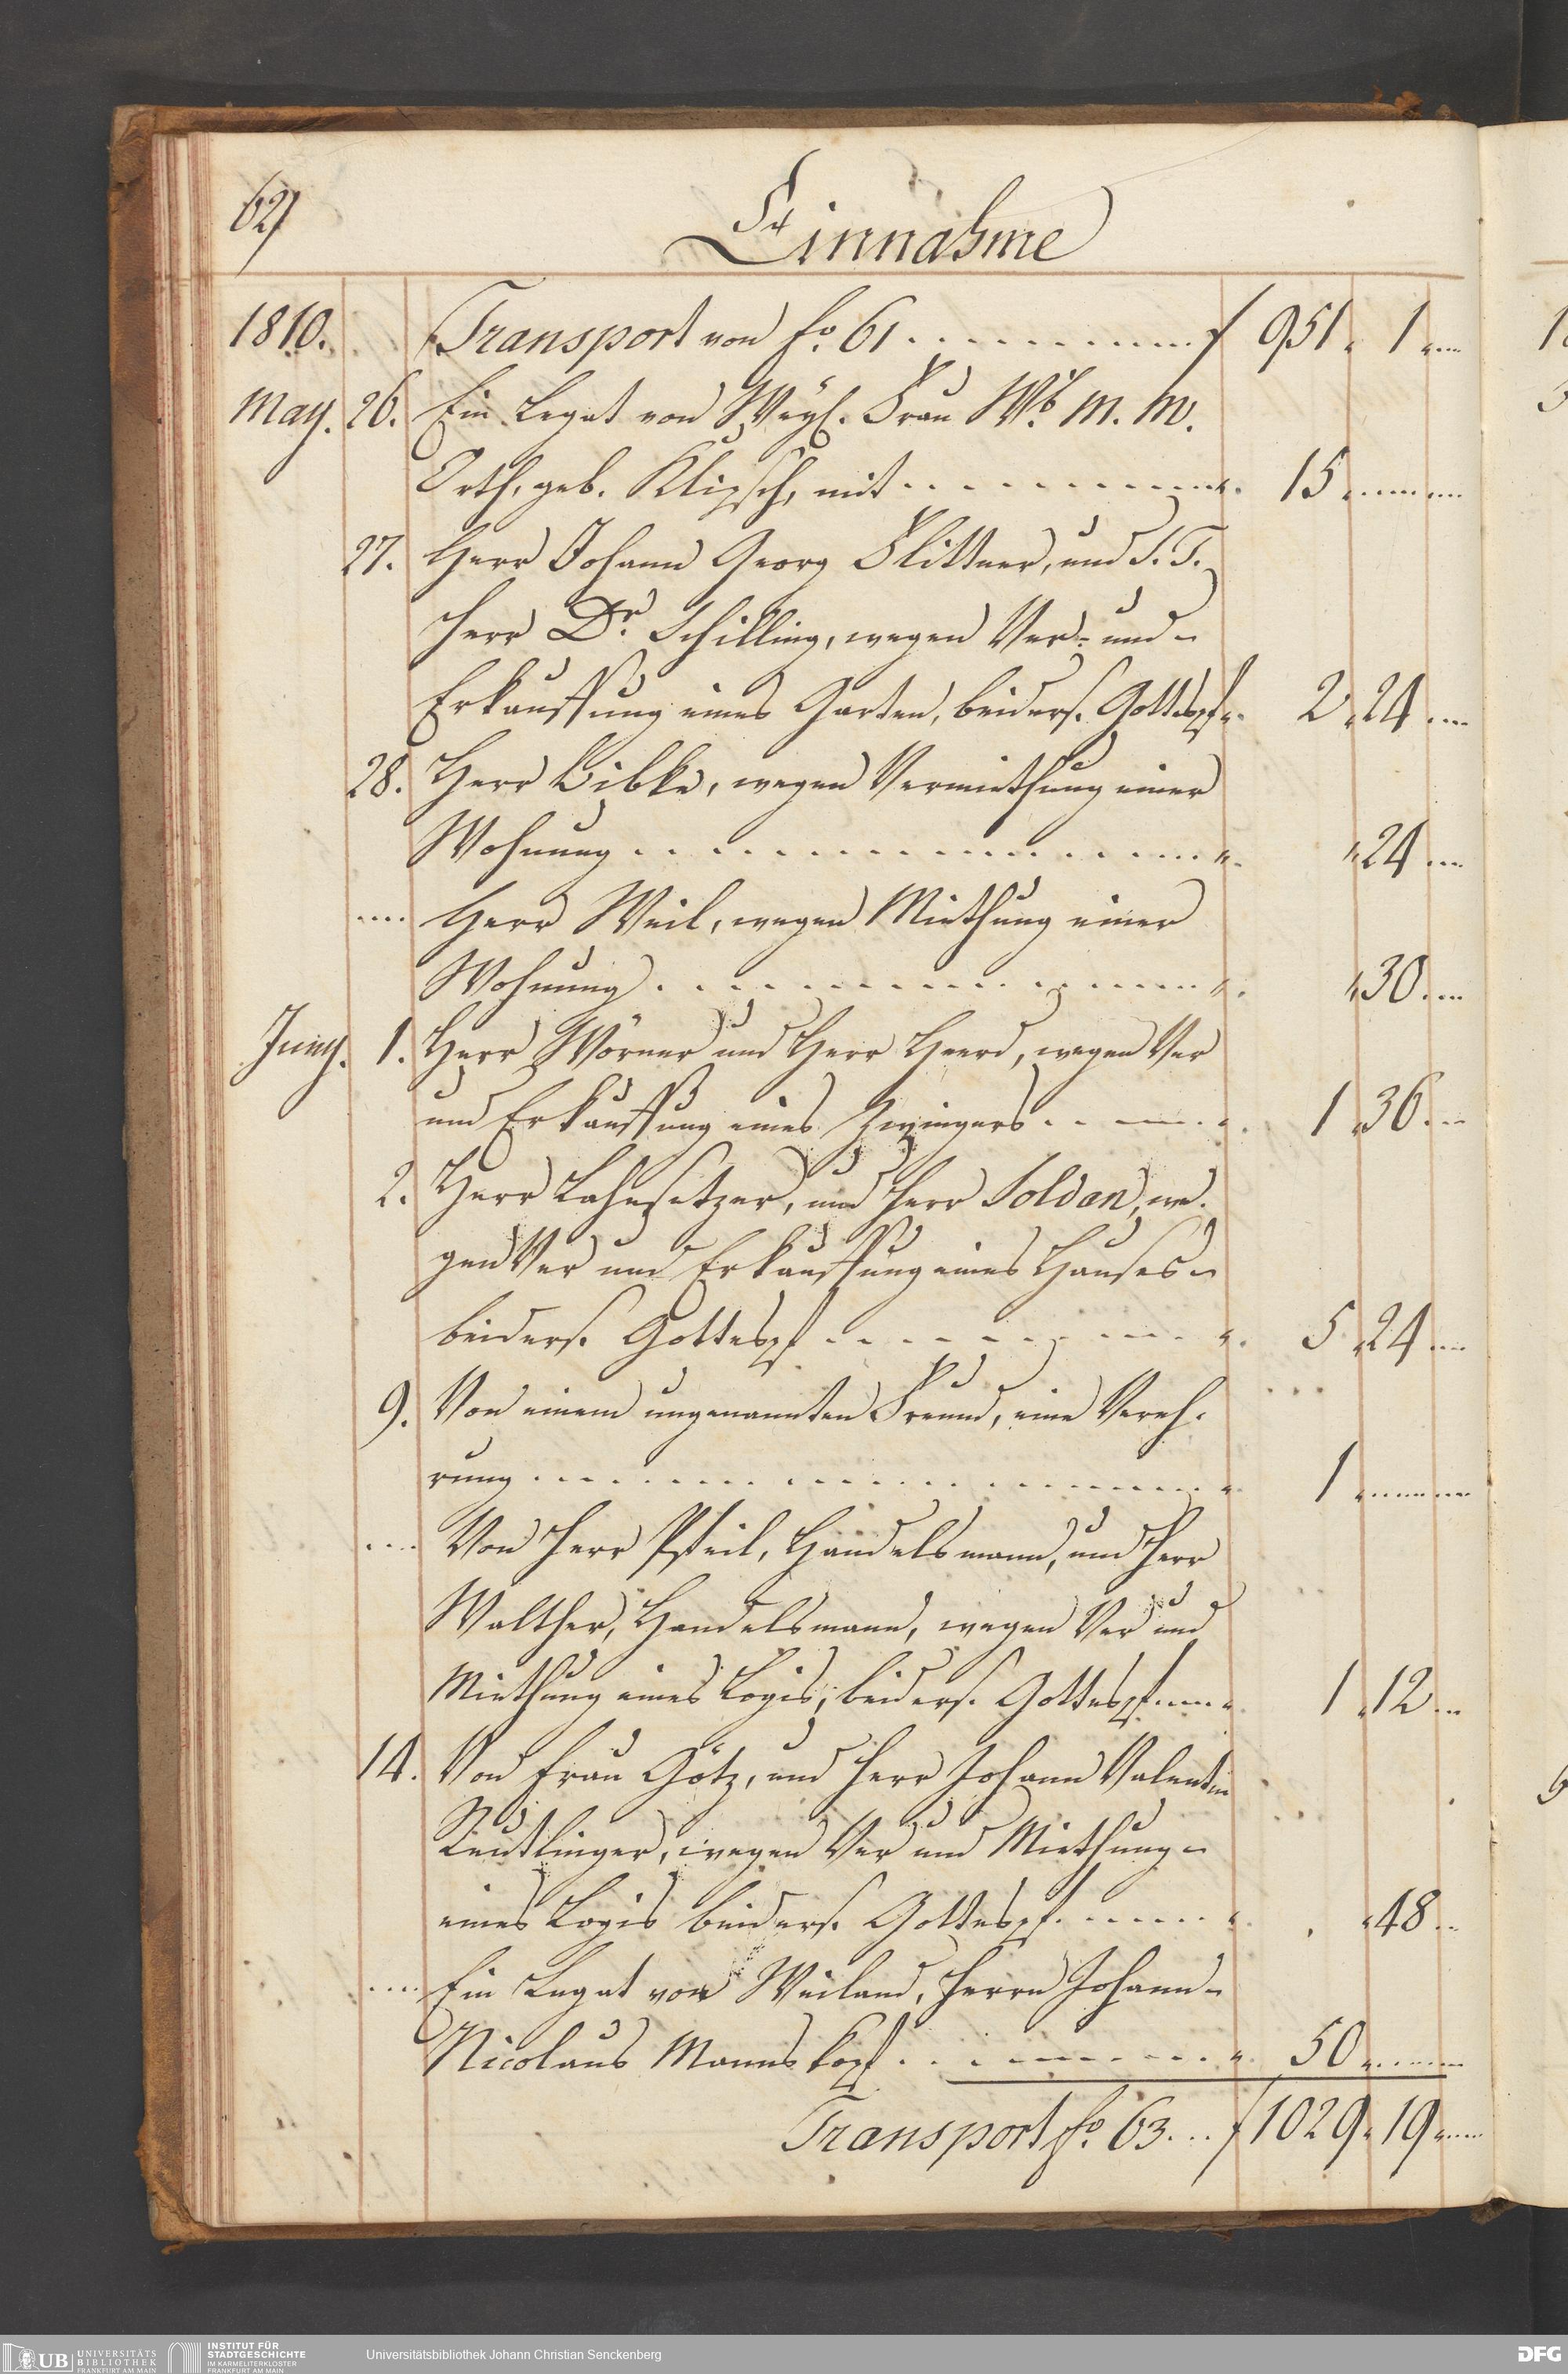 62
Einnahme
1810. Transport von fo. 61 . . . . . . . . . . f 951 „ 1 „ ...
May. 26. Ein Legat von Weyl. Frau Wb. M. M.
Orth, geb. Klipsch, mit . . . . . . . . . . „. 15 . . . . . .
27. Herr Johann Georg Flittner, und S. T.
Herr Dr. Schilling, wegen Ver- und -
Erkauffung eines Garten, beiders. Gottespf „. 2 „ 24 ...
28. Herr Bibke, wegen Vermiethung einer
Wohnung . . . . . . . . . . . . . . . „. „ 24 ...
.... Herr Weil, wegen Miethung einer
Wohnung . . . . . . . . . . . . . . . „. „ 30 ...
Juny. 1. Herr Wörner und Herr Heerd, wegen Ver
und Erkauffung eines Zwingers . . . . . „. 1 „ 36 ...
2. Herr Lahesetzer, und Herr Soldan, we-
gen Ver und Erkauffung eines Hauses -
beiders. Gottespf . . . . . . . . . . „. 5 „ 24 ...
9. Von einem ungenannten Freund, eine Vereh-
rung . . . . . . . . . . . . . . . „. 1 „ . . . . .
.... Von Herr Pfeil, Handelsmann, und Herr
Walther, Handelsmann, wegen Ver und
Miethung eines Logis, beiders. Gottespf. . . . „ 1 „ 12 ...
14. Von Frau Götz, und Herr Johann Valentin
Reutlinger, wegen Ver und Miethung -
eines Logis beiders. Gottespf. . . . . . . „. „ 48 ..
.... Ein Legat von Weiland, Herrn Johann -
Nicolaus Mannskopf . . . . . . . . . . „. 50 „ . . . . .
Transport fo. 63 ... f 1029 „ 19 „ ...
UB UNIVERSITÄTS BIBLIOTHEK FRANKFURT AM MAIN
INSTITUT FÜR STADTGESCHICHTE IM KARMELITERKLOSTER FRANKFURT AM MAIN
Universitätsbibliothek Johann Christian Senckenberg
DFG